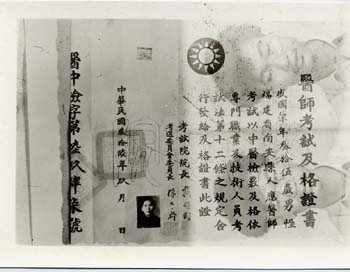 醫師考試及格證書
戚國榮年叁拾伍歲男性
福建省南安縣人應醫師
考試以中醫檢覈及格依
專門職業及技術人員考
試法第十二條之規定合
行發給及格證書此證
考試院院長
考選委員會委員長 陳
中華民國叁拾陸年玖月 日
醫中檢字第陸久肆柒號